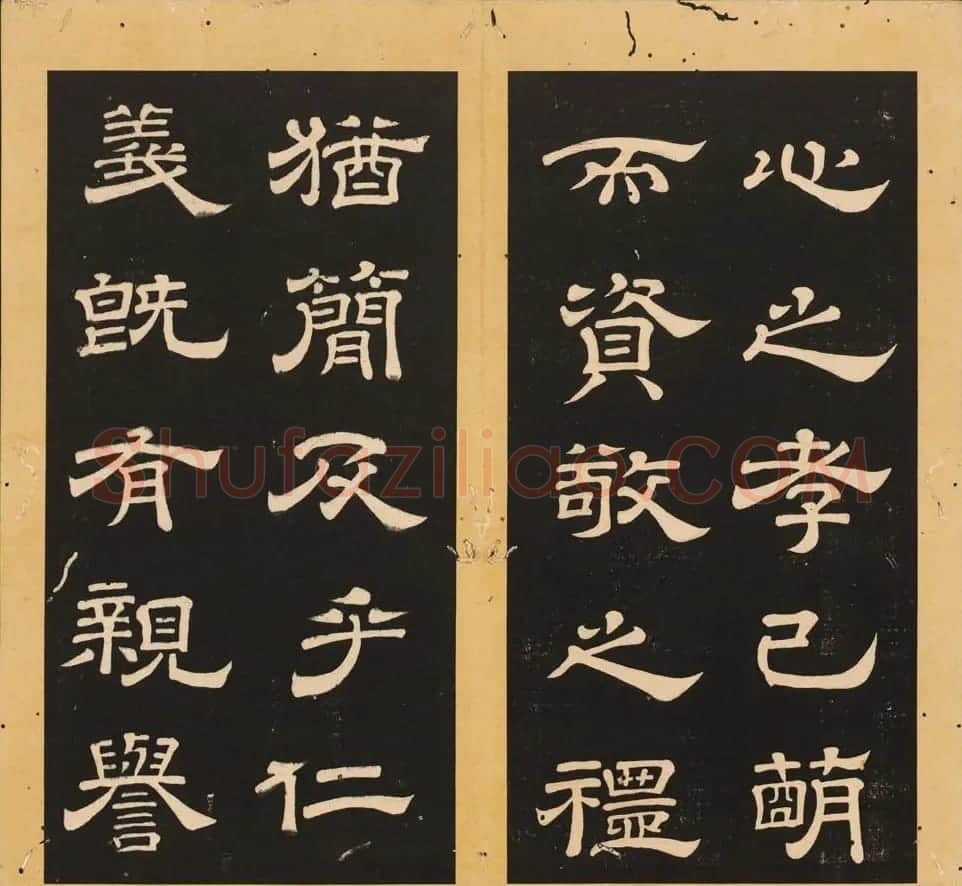 心之孝已萌
而資敬之禮
猶簡及乎仁
義既有親譽
Shufaziliao.COM